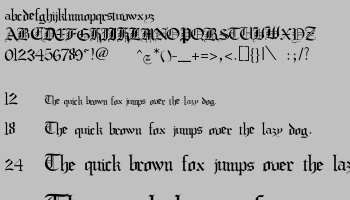 abcdefghijklmnopqrstuvwxyz
ABCDEFGHIJKLMNOPQRSTUVWXYZ
0123456789"!@ ^~*()-_+=>,<.[]{}|\ :;/?
12 The quick brown fox jumps over the lazy dog.
18 The quick brown fox jumps over the lazy dog.
24 The quick brown fox jumps over the laz